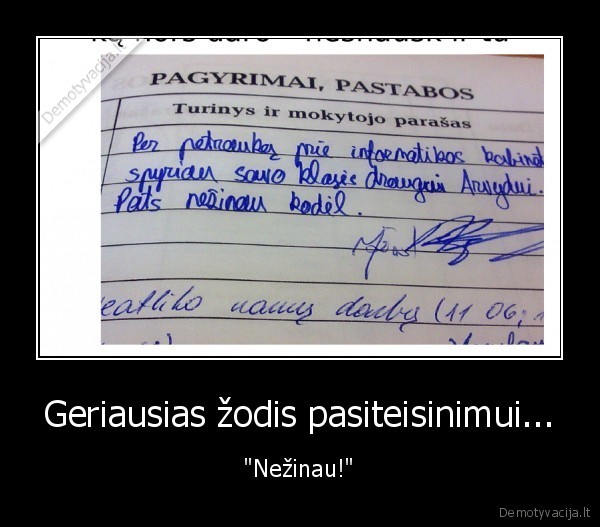 Demotyvacija.lt
PAGYRIMAI, PASTABOS
Turinys ir mokytojo parašas
Per petrauką prie informatikos kabinet
spyriau savo klasės draugui Arvydui.
Pats nežinau kodėl.
eatliko namų darbų (11 06;
Geriausias žodis pasiteisinimui...
"Nežinau!"
Demotyvacija.lt